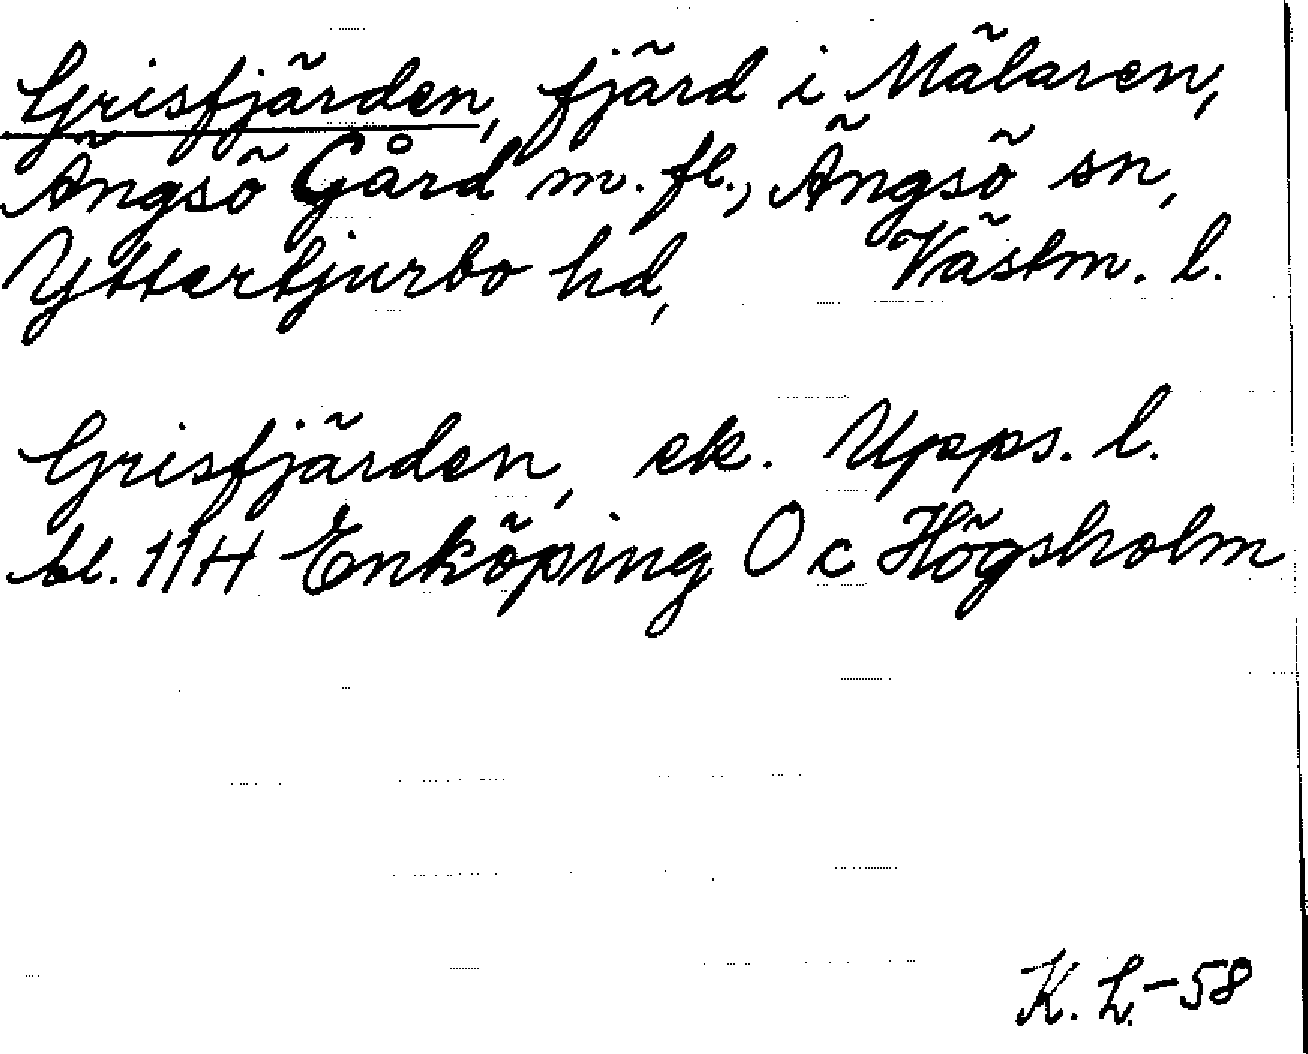 Grisfjärden, fjärd i Mälaren,
Ängsö Gård m. fl., Ängsö sn,
Yttertjurbo hd, Västm. l.
Grisfjärden, ek. Upps. l.
bl. 11H Enköping O c Högsholm
K. L.-58